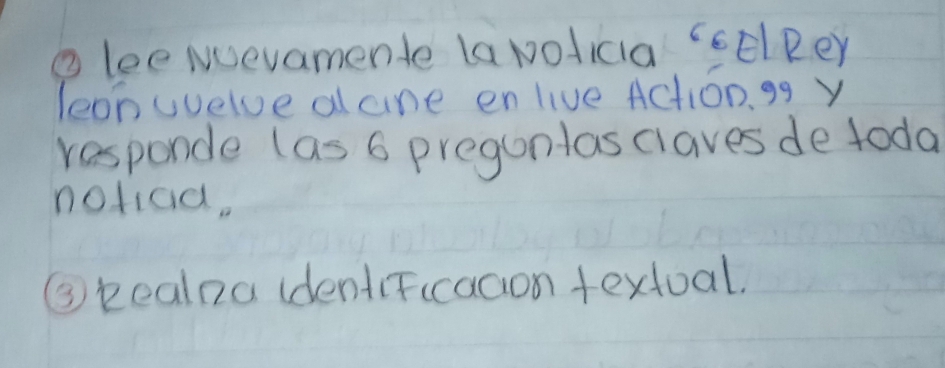 ② lee Nuevamente la Noticia “El Rey
león vuelve al cine en live Action." y
responde las 6 preguntas claves de toda
noticia.
③ Realiza identificacion textual.